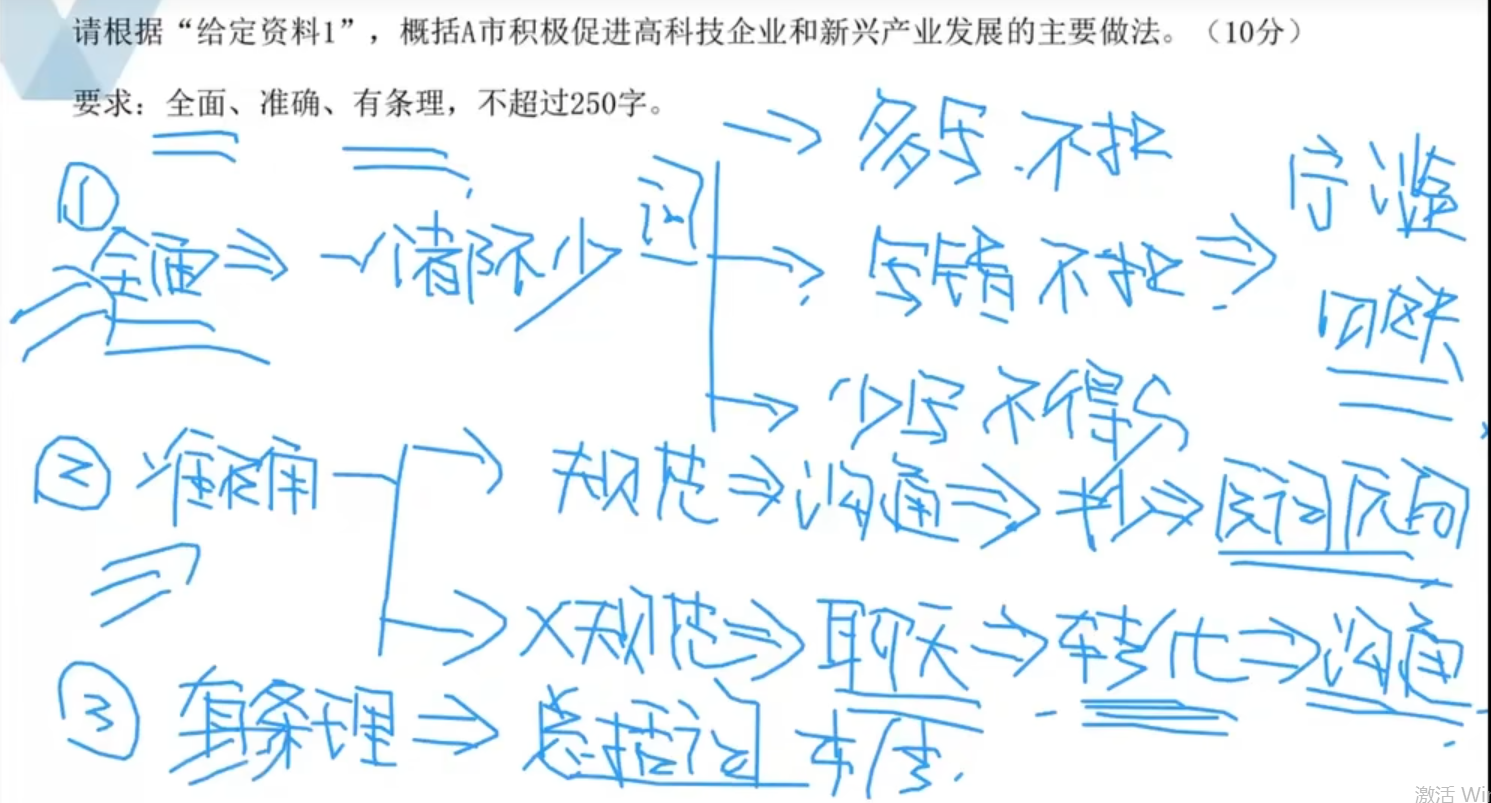 请根据“给定资料1”，概括A市积极促进高科技企业和新兴产业发展的主要做法。（10分）
要求：全面、准确、有条理，不超过250字。
① 全面⇒一个都不少 词
→多写不扣
→写错不扣⇒宁滥勿缺
→少写不得分
② 准确
→规范⇒沟通⇒抄⇒原词原句
→×规范⇒聊天⇒转化⇒沟通
③ 有条理⇒总括词
激活 Win